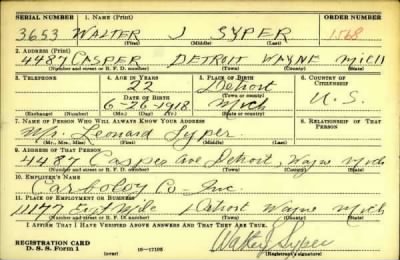 SERIAL NUMBER 1. NAME (Print) ORDER NUMBER
3653 WALTER J SYPER 1568
(First) (Middle) (Last)
2. ADDRESS (Print)
4487 CASPER DETROIT WAYNE MICH
(Number and street or R. F. D. number) (Town) (County) (State)
3. TELEPHONE 4. AGE IN YEARS 5. PLACE OF BIRTH 6. COUNTRY OF CITIZENSHIP
22 Detroit
DATE OF BIRTH (Town or county)
6-26-1918 Mich U.S.
(Exchange) (Number) (Mo.) (Day) (Yr.) (State or country)
7. NAME OF PERSON WHO WILL ALWAYS KNOW YOUR ADDRESS 8. RELATIONSHIP OF THAT PERSON
Mr. Leonard Syper
(Mr., Mrs., Miss) (First) (Middle) (Last)
9. ADDRESS OF THAT PERSON
4487 Casper Ave Detroit, Wayne Mich
(Number and street or R. F. D. number) (Town) (County) (State)
10. EMPLOYER'S NAME
Carboloy Co Inc.
11. PLACE OF EMPLOYMENT OR BUSINESS
11177 Eight Mile Detroit Wayne Mich
(Number and street or R. F. D. number) (Town) (County) (State)
I AFFIRM THAT I HAVE VERIFIED ABOVE ANSWERS AND THAT THEY ARE TRUE.
REGISTRATION CARD
D. S. S. Form 1 16-17105 Walter J Syper
(Registrant's signature)